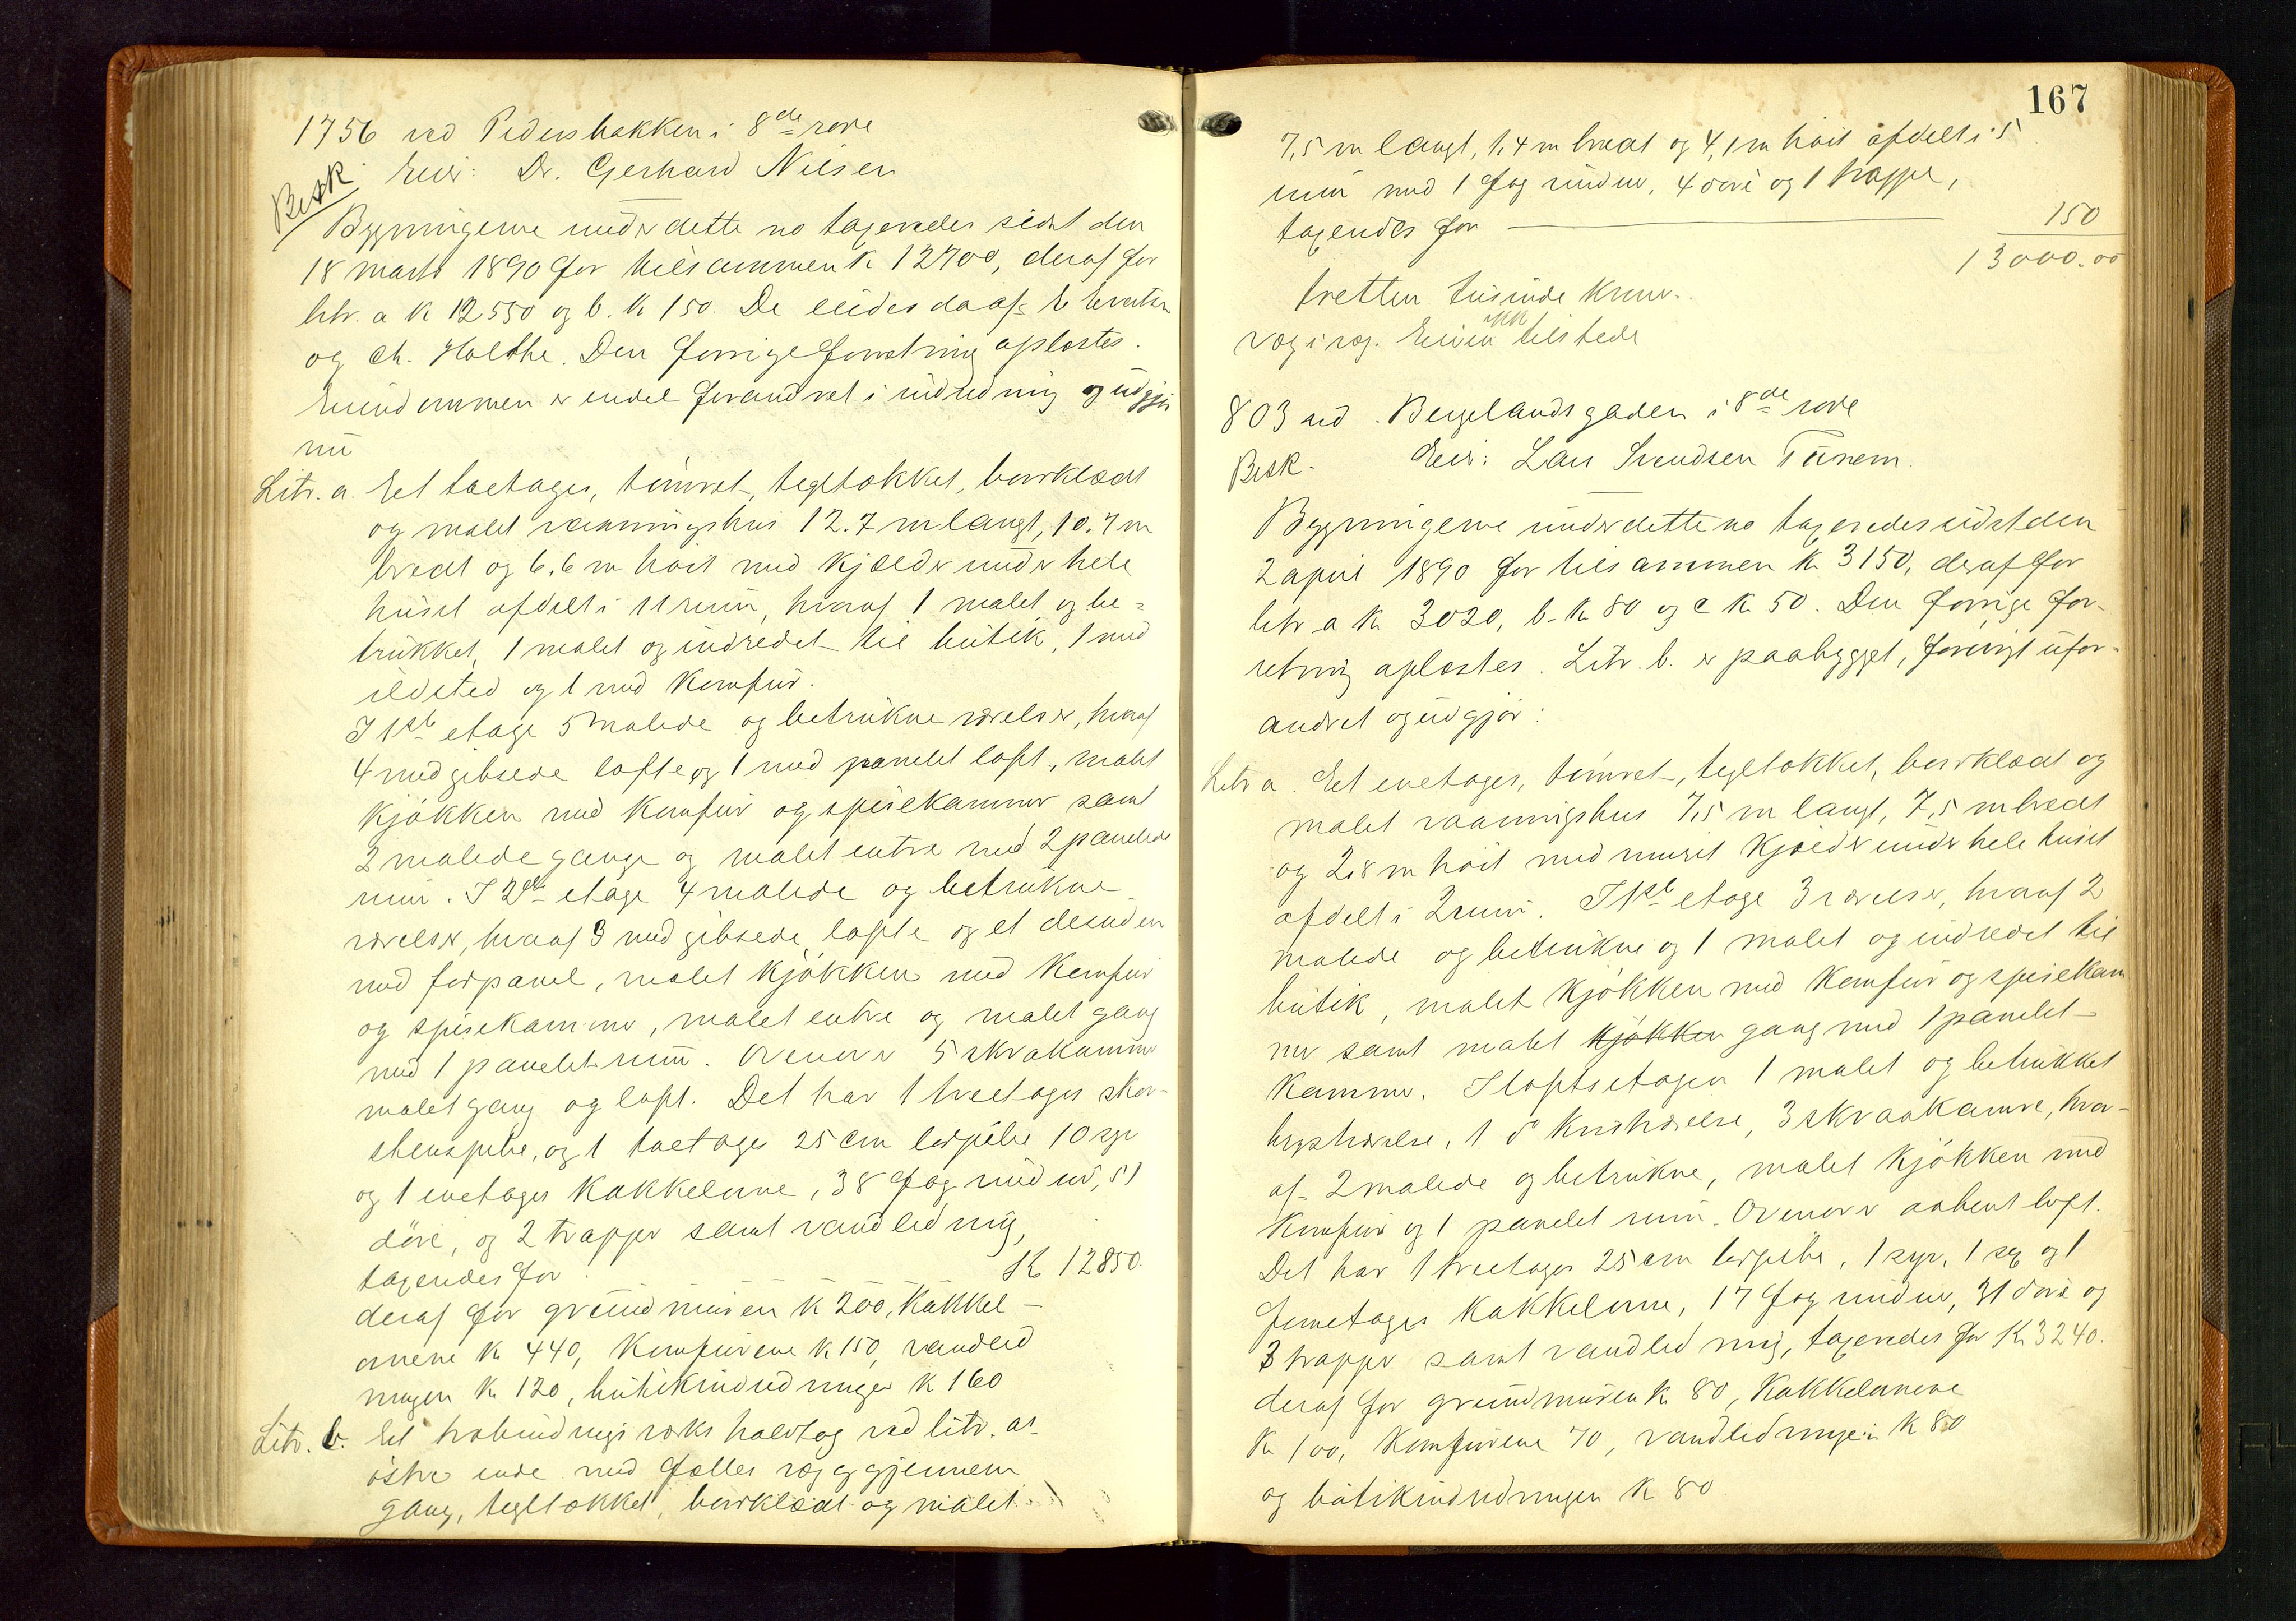 1756 ved Pedersbakken i 8de rode
Besk. Eier: Dr. Gerhard Nilsen
Bygningerne under dette no taxeredes sidst den
18 marts 1890 for tilsammen K 12700, deraf for
litr. a K 12550 og b. K 150. De eiedes da af
og Ch. Holthe. Den forrige forretning oplæstes.
Eiendommen er endel forandret i indredning og udgjör
nu
Litr. a. Et toetages, tömret, tegltækket, bordklædt
og malet vaaningshus 12.7 m langt, 10.7 m
bredt og 6,6 m höit med kjælder under hele
huset afdelt i 11 rum, hvoraf 1 malet og be-
trukket, 1 malet og indredet til butik, 1 med
ildsted og 1 med komfur.
I 1ste etage 5 malede og betrukne værelser, hvoraf
4 med gibsede lofte og 1 med panelet loft, malet
kjökken med komfur og spisekammer samt
2 malede gange og malet entre med 2 panelede
rum. I 2den etage 4 malede og betrukne
værelser, hvoraf 3 med gibsede lofte og et desuden
med forpanel, malet kjökken med komfur
og spisekammer, malet entre og malet gang
med 1 panelet rum. Ovenover 5 skraakammer
malet gang og loft. Det har 1 treetages skor-
stenspibe, og 1 toetages 25 cm lerpibe 10 syr
og 1 enetages kakkelovne, 38 fag vinduer, 51
döre, og 2 trapper samt vandledning,
taxeredes for K 12850.
deraf for grundmuren K 200, kakkel-
ovnene K 440, komfurene K 150, vandled
ningen K 120, butikindredningen K 160
Litr. b. Et trabindings halvtag ved litr. as
östre ende med fælles væg og gjennem
gang, tegltækket, bordklædt og malet
167
7,5 m langt, 1,4 m bredt og 4,1 m höit afdelt i 5
rum med 1 fag vinduer, 4 döre og 1 trappe,
taxeredes for 150
13000.00
tretten tusinde kroner.
væg i væg. Eieren ikke tilstede
803 ved Bergelandsgaden i 8de rode
Besk. Eier: Lars Svendsen Tunem.
Bygningerne under dette no taxeredes sidst den
2 april 1890 for tilsammen K 3150, deraf for
litr a K 3020, b. K 80 og c K 50. Den forrige for-
retning oplæstes. Litr. b. er paabygget, forövrigt ufor-
andret og udgjör:
Litr a. Et enetages, tömret, tegltækket, bordklædt og
malet vaaningshus 7,5 m langt, 7,5 m bredt
og 2,8 m höit med muret kjælder under hele huset
afdelt i 2 rum. I 1ste etage 3 værelser, hvoraf 2
malede og betrukne og 1 malet og indredet til
butik, malet kjökken med komfur og spisekam
mer samt malet kjökken gang med 1 panelet
kammer. I loftsetagen 1 malet og betrukket
kvistværelse, 1 do kvistværelse, 3 skraakamre, hvor-
af 2 malede og betrukne, malet kjökken med
komfur og 1 panelet rum. Ovenover aabent loft.
Det har 1 treetages 25 cm lerpibe, 1 syr, 1 sex og 1
femetages kakkelovne, 17 fag vinduer, 31 döre og
3 trapper samt vandledning, taxeredes for K 3240.
deraf for grundmuren K 80, kakkelovnene
K 100, komfurene 70, vandledningen K 80
og butikindredningen K 80